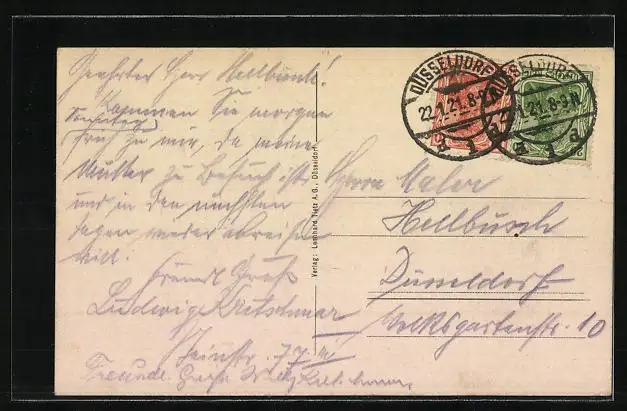 Geehrter Herr Hellbusch!
Kommen Sie morgen
Sonntag
früh zu mir, da meine
Mutter zu Besuch ist
und in den nächsten
Tagen wieder abreisen
will.
Freundl. Gruß
Ludwig Kretschmar
77 III
Freundl. Gruß Willy Kretschmar
Verlag: Leonhard Tietz A.G., Düsseldorf
DÜSSELDORF
22.1.21.8-9N
DÜSSELDORF
1.21.8-9N
Herrn Maler
Hellbusch
Düsseldorf
Volksgartenstr. 10